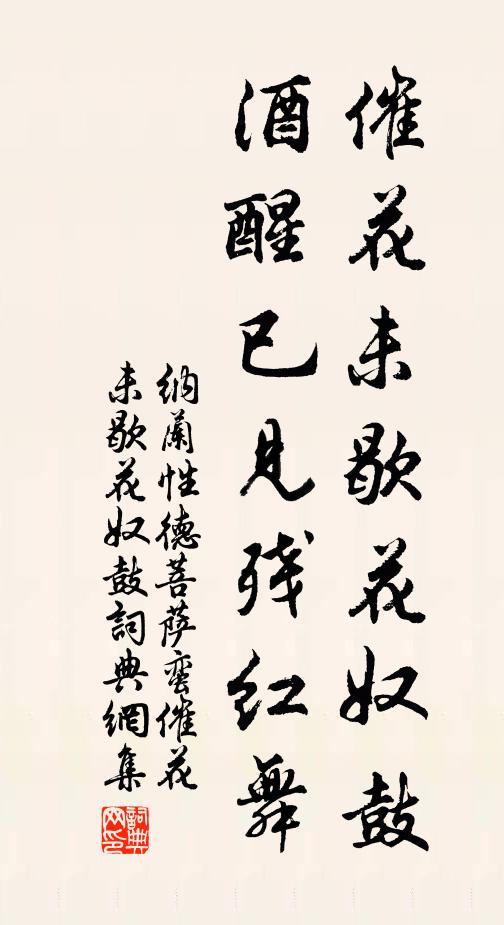 催花未歇花奴鼓
酒醒已見残红舞
纳蘭性德菩萨蛮催花
未歇花奴鼓詞典網集
詞典
网印